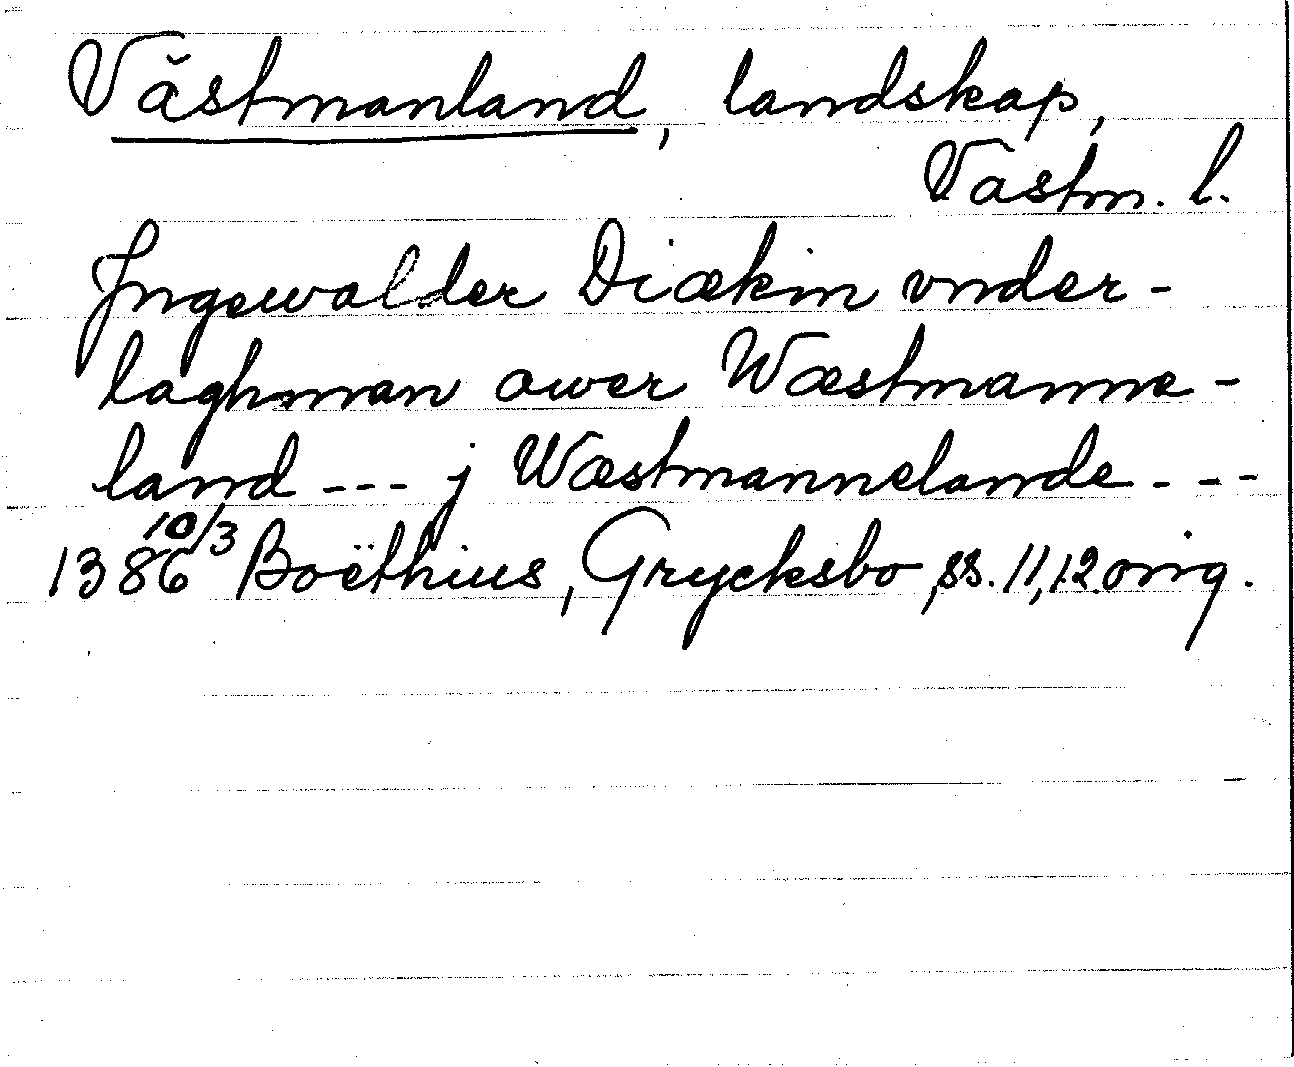 Västmanland, landskap,
Västm. l.
Jngewalder Diækin vnder-
laghman ower Wæstmanne-
land --- j Wæstmannelande ---
1386 10/3 Boëthius, Grycksbo, ss. 11, 12. orig.